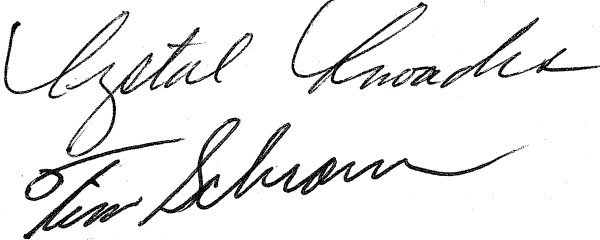 Crystal Rhoades
Tim Schram